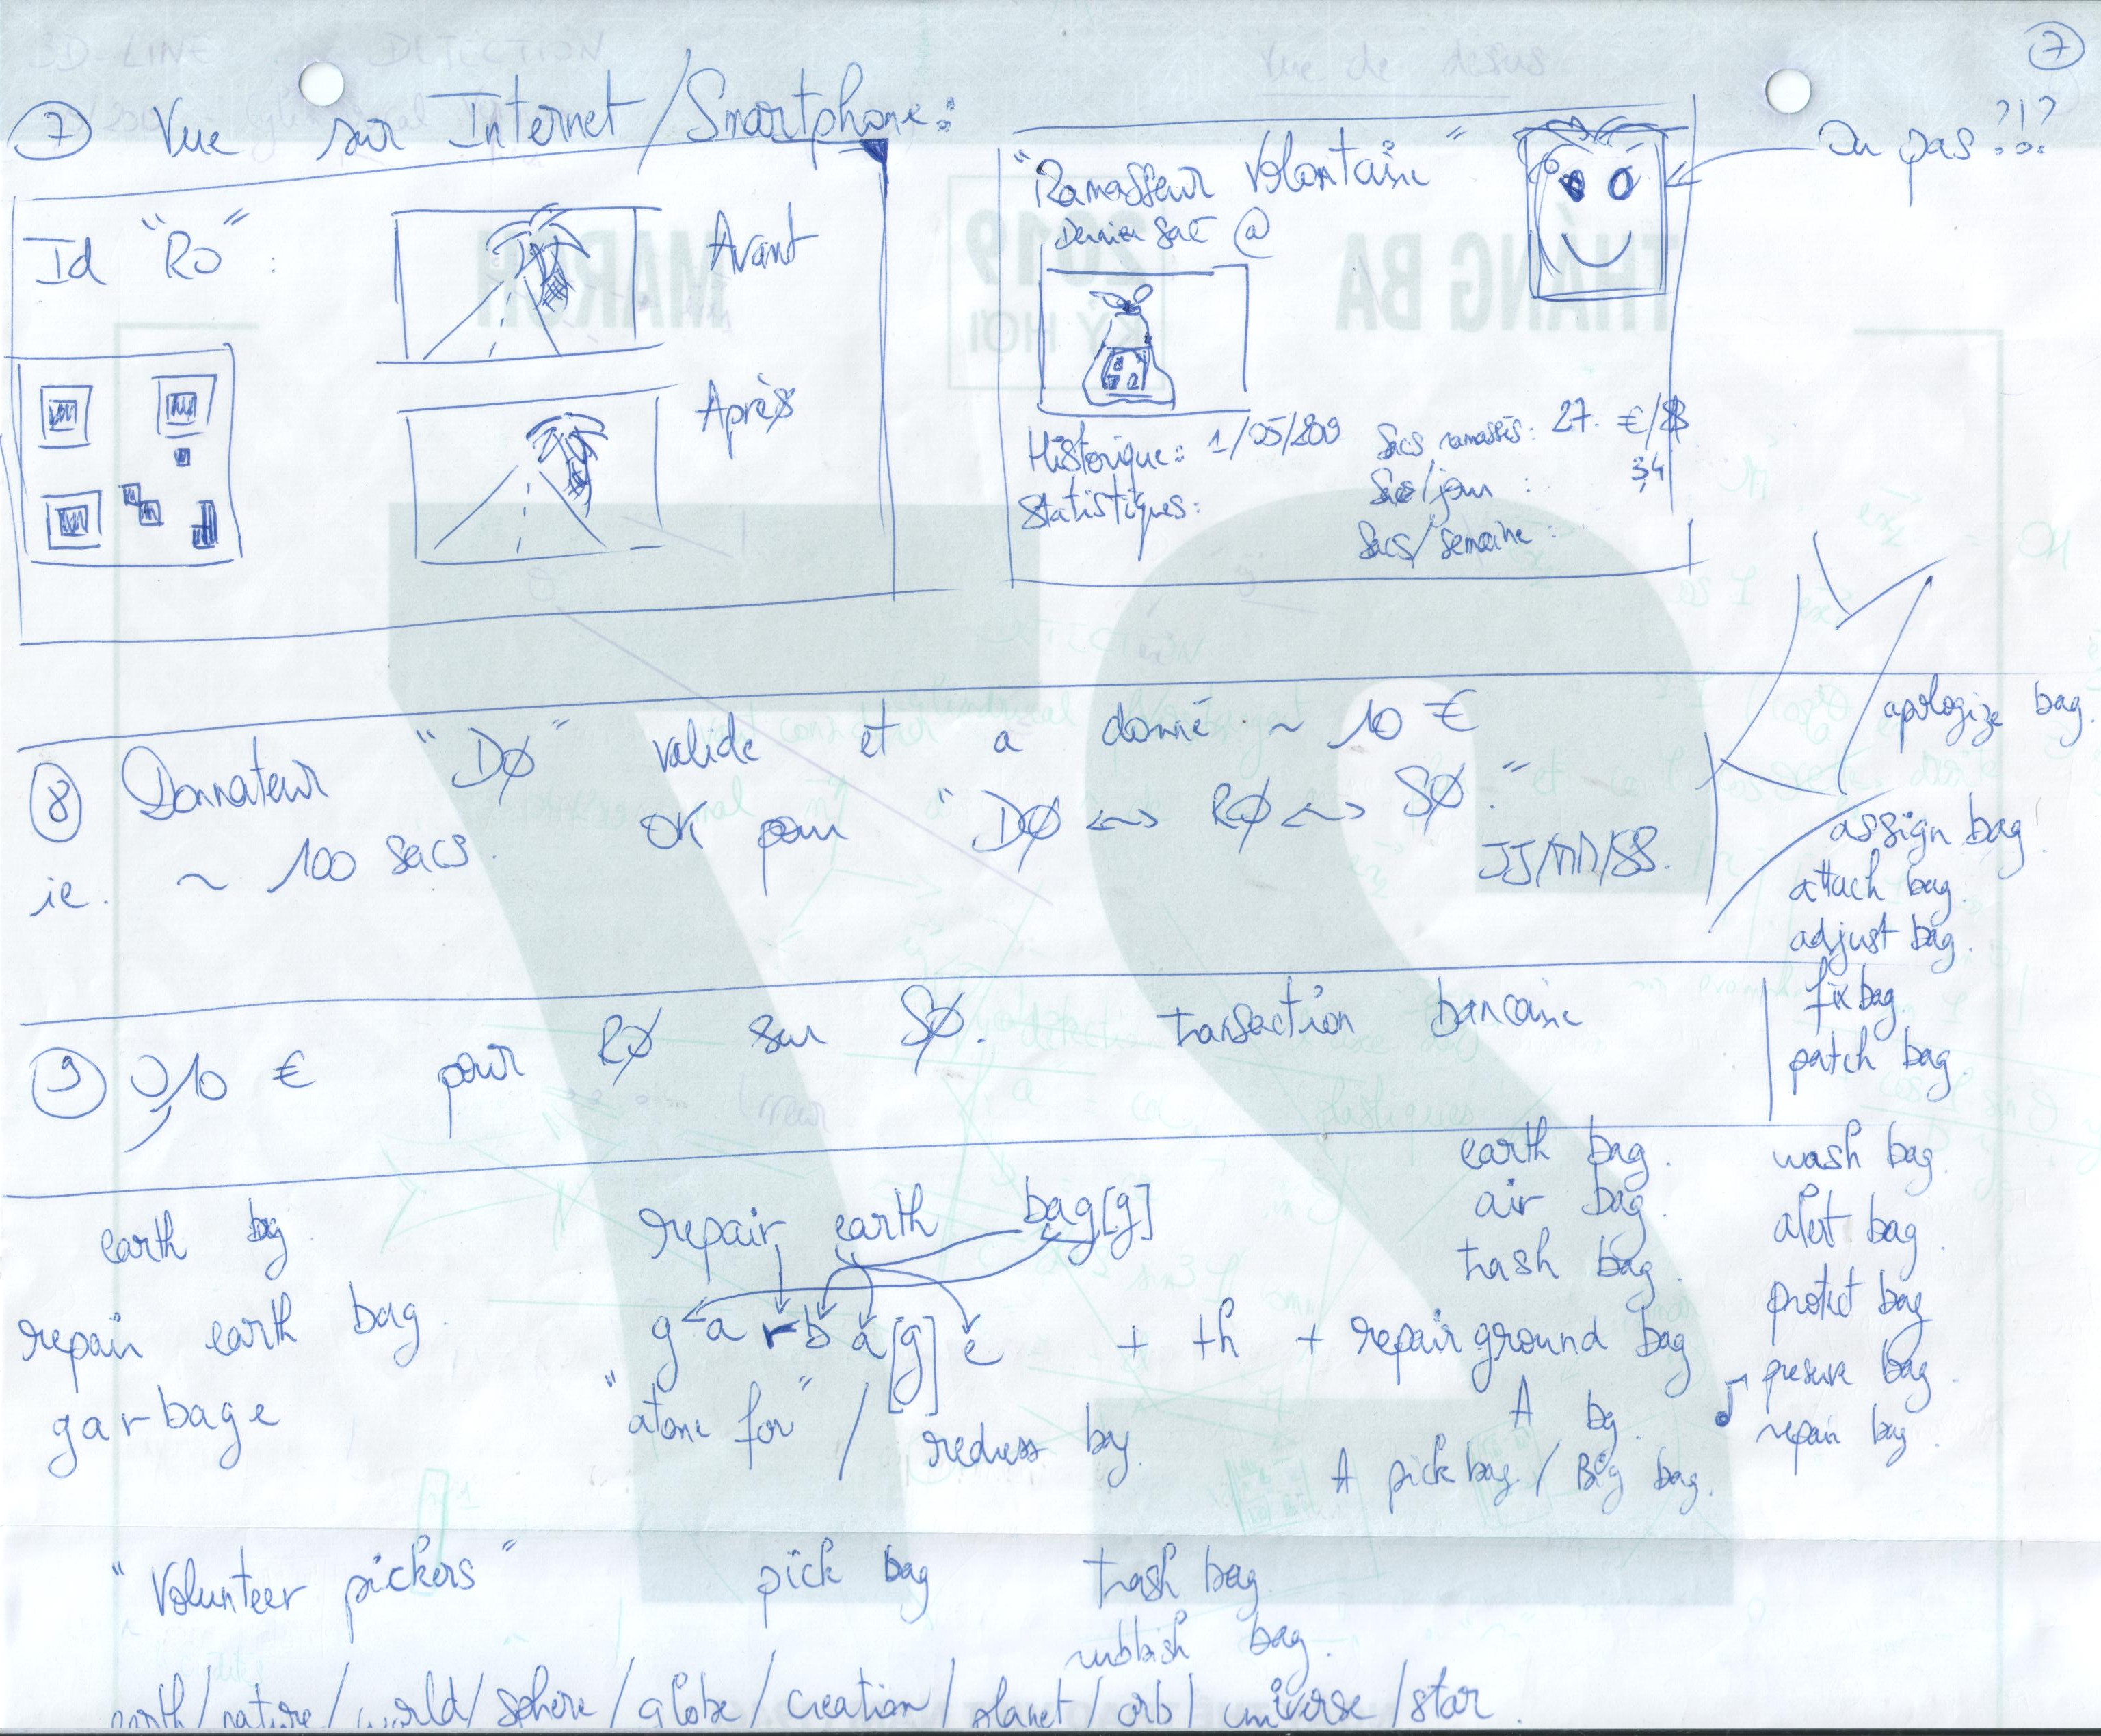 7
7 Vue sur Internet/Smartphone:
Id "R0" :
Avant
Après
"Ramasseur Volontaire"
Dernier Sac @
Ou pas ?!?
Historique: 1/05/2019
Statistiques:
Sacs ramassés: 27. €/$
Sacs/jour : 3,4
Sacs/semaine :
8 Donnateur "DØ" valide et a donné ~ 10 €
ie. ~ 100 sacs. OK pour "DØ <-> RØ <-> SØ."
JJ/MM/SS.
apologize bag.
assign bag
attach bag.
adjust bag.
fix bag.
patch bag.
9 0,10 € pour RØ sur SØ. transaction bancaire
earth bag.
air bag.
trash bag.
wash bag.
alert bag.
protect bag
preserve bag.
repair bag.
earth bag.
repair earth bag.
garbage
repair earth bag[g]
g a r b a [g] e + th + repair ground bag
"atone for" / redress bag.
A bag.
A pick bag. / Big bag.
"Volunteer pickers" pick bag trash bag.
rubbish bag.
earth/nature/world/sphere/globe/creation/planet/orb/universe/star.
THÁNG BA
MARCH
2019
KỶ HỢI
27
3D-LINE DETECTION
Vue de desus